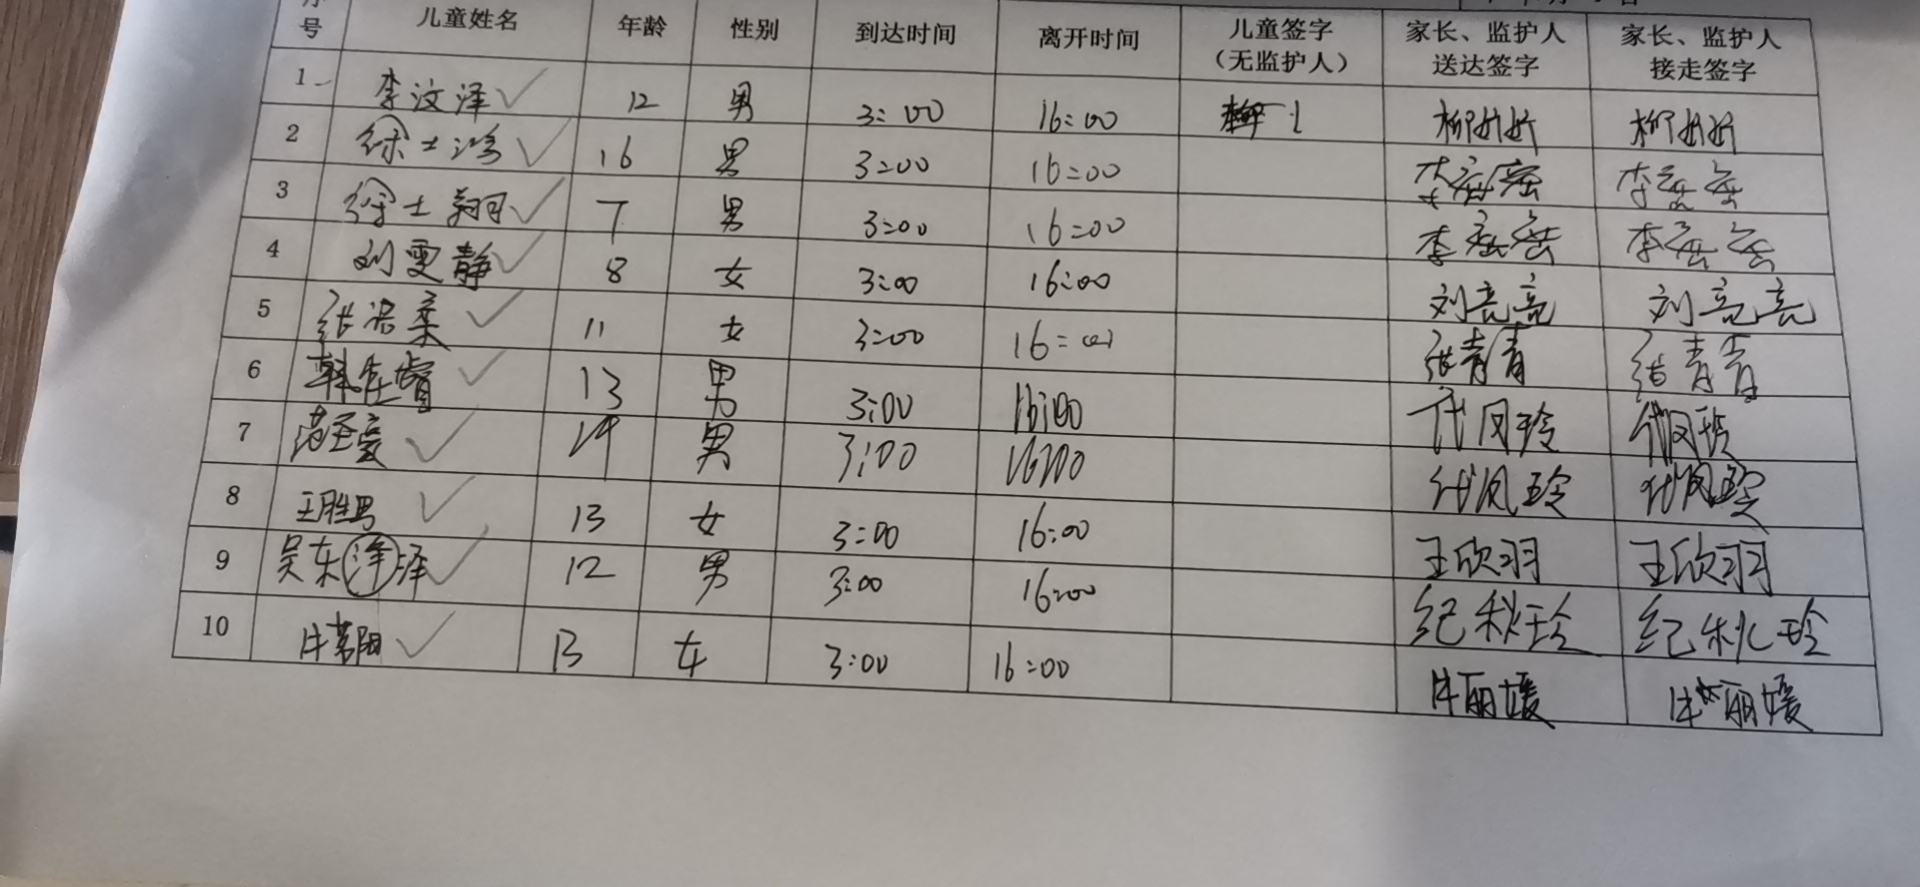 序号 儿童姓名 年龄 性别 到达时间 离开时间 儿童签字（无监护人） 家长、监护人送达签字 家长、监护人接走签字
1 李汶泽 12 男 3:00 16:00
2 徐士鸿 16 男 3:00 16:00
3 徐士翔 7 男 3:00 16:00
4 刘雯静 8 女 3:00 16:00 刘亮亮 刘亮亮
5 11 女 3:00 16:00 张青青 张青青
6 韩佳睿 13 男 3:00 16:00 代凤玲 代凤玲
7 14 男 3:00 16:00 代凤玲 代凤玲
8 王胜男 13 女 3:00 16:00 王欣羽 王欣羽
9 吴东洋泽 12 男 3:00 16:00 纪秋玲 纪秋玲
10 牛茗阳 13 女 3:00 16:00 牛丽媛 牛丽媛